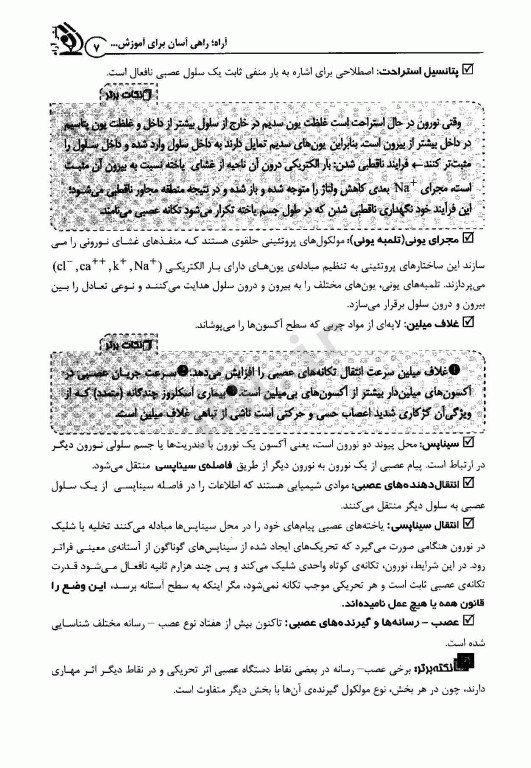 آراه؛ راهی آسان برای آموزش... ۷
پتانسیل استراحت: اصطلاحی برای اشاره به بار منفی ثابت یک سلول عصبی نافعال است.
نکات برتر
وقتی نورون در حال استراحت است غلظت یون سدیم در خارج از سلول بیشتر از داخل و غلظت یون پتاسیم
در داخل بیشتر از بیرون است. بنابراین یون‌های سدیم تمایل دارند به داخل سلول وارد شده و داخل سلول را
مثبت‌تر کنند ← فرایند ناقطبی شدن: بار الکتریکی درون آن ناحیه از غشای یاخته نسبت به بیرون آن مثبت
است، مجرای Na+ بعدی کاهش ولتاژ را متوجه شده و باز شده و در نتیجه منطقه مجاور ناقطبی می‌شود؛
این فرآیند خود نگهداری ناقطبی شدن که در طول جسم یاخته تکرار می‌شود تکانه عصبی می‌نامند.
مجرای یونی(تلمبه یونی): مولکول‌های پروتئینی حلقوی هستند که منفذهای غشای نورونی را می
سازند این ساختارهای پروتئینی به تنظیم مبادله‌ی یون‌های دارای بار الکتریکی (cl⁻, ca⁺⁺, k⁺, Na⁺)
می‌پردازند. تلمبه‌های یونی، یون‌های مختلف را به بیرون و درون سلول هدایت می‌کننـد و نوعی تعادل را بین
بیرون و درون سلول برقرار می‌سازد.
غلاف میلین: لایه‌ای از مواد چربی که سطح آکسون‌ها را می‌پوشاند.
نکات برتر
❶غلاف میلین سرعت انتقال تکانه‌های عصبی را افزایش می‌دهد. ❷سرعت جریان عصبی در
آکسون‌های میلین‌دار بیشتر از آکسون‌های بی‌میلین است. ❸بیماری اسکلروز چندگانه (متعدد) که از
ویژگی‌آن کژکاری شدید اعصاب حسی و حرکتی است ناشی از تباهی غلاف میلین است.
سیناپس: محل پیوند دو نورون است، یعنی آکسون یک نورون با دندریت‌ها یا جسم سلولی نورون دیگر
در ارتباط است. پیام عصبی از یک نورون به نورون دیگر از طریق فاصله‌ی سیناپسی منتقل می‌شود.
انتقال‌دهنده‌های عصبی: موادی شیمیایی هستند که اطلاعات را در فاصله سیناپسی از یک سلول
عصبی به سلول دیگر منتقل می‌کنند.
انتقال سیناپسی: یاخته‌های عصبی پیام‌های خود را در محل سیناپس‌ها مبادله می‌کنند تخلیه یا شلیک
در نورون هنگامی صورت می‌گیرد که تحریک‌های ایجاد شده از سیناپس‌های گوناگون از آستانه‌ی معینی فراتر
رود. در این شرایط، نورون، تکانه‌ی کوتاه واحدی شلیک می‌کند و پس چند هزارم ثانیه نافعال می‌شود قدرت
تکانه‌ی عصبی ثابت است و هر تحریکی موجب تکانه نمی‌شود، مگر اینکه به سطح آستانه برسد، این وضع را
قانون همه یا هیچ عمل نامیده‌اند.
عصب – رسانه‌ها و گیرنده‌های عصبی: تاکنون بیش از هفتاد نوع عصب – رسانه مختلف شناسایی
شده است.
نکته‌برتر: برخی عصب– رسانه در بعضی نقاط دستگاه عصبی اثر تحریکی و در نقاط دیگر اثر مهاری
دارند، چون در هر بخش، نوع مولکول گیرنده‌ی آن‌ها با بخش دیگر متفاوت است.